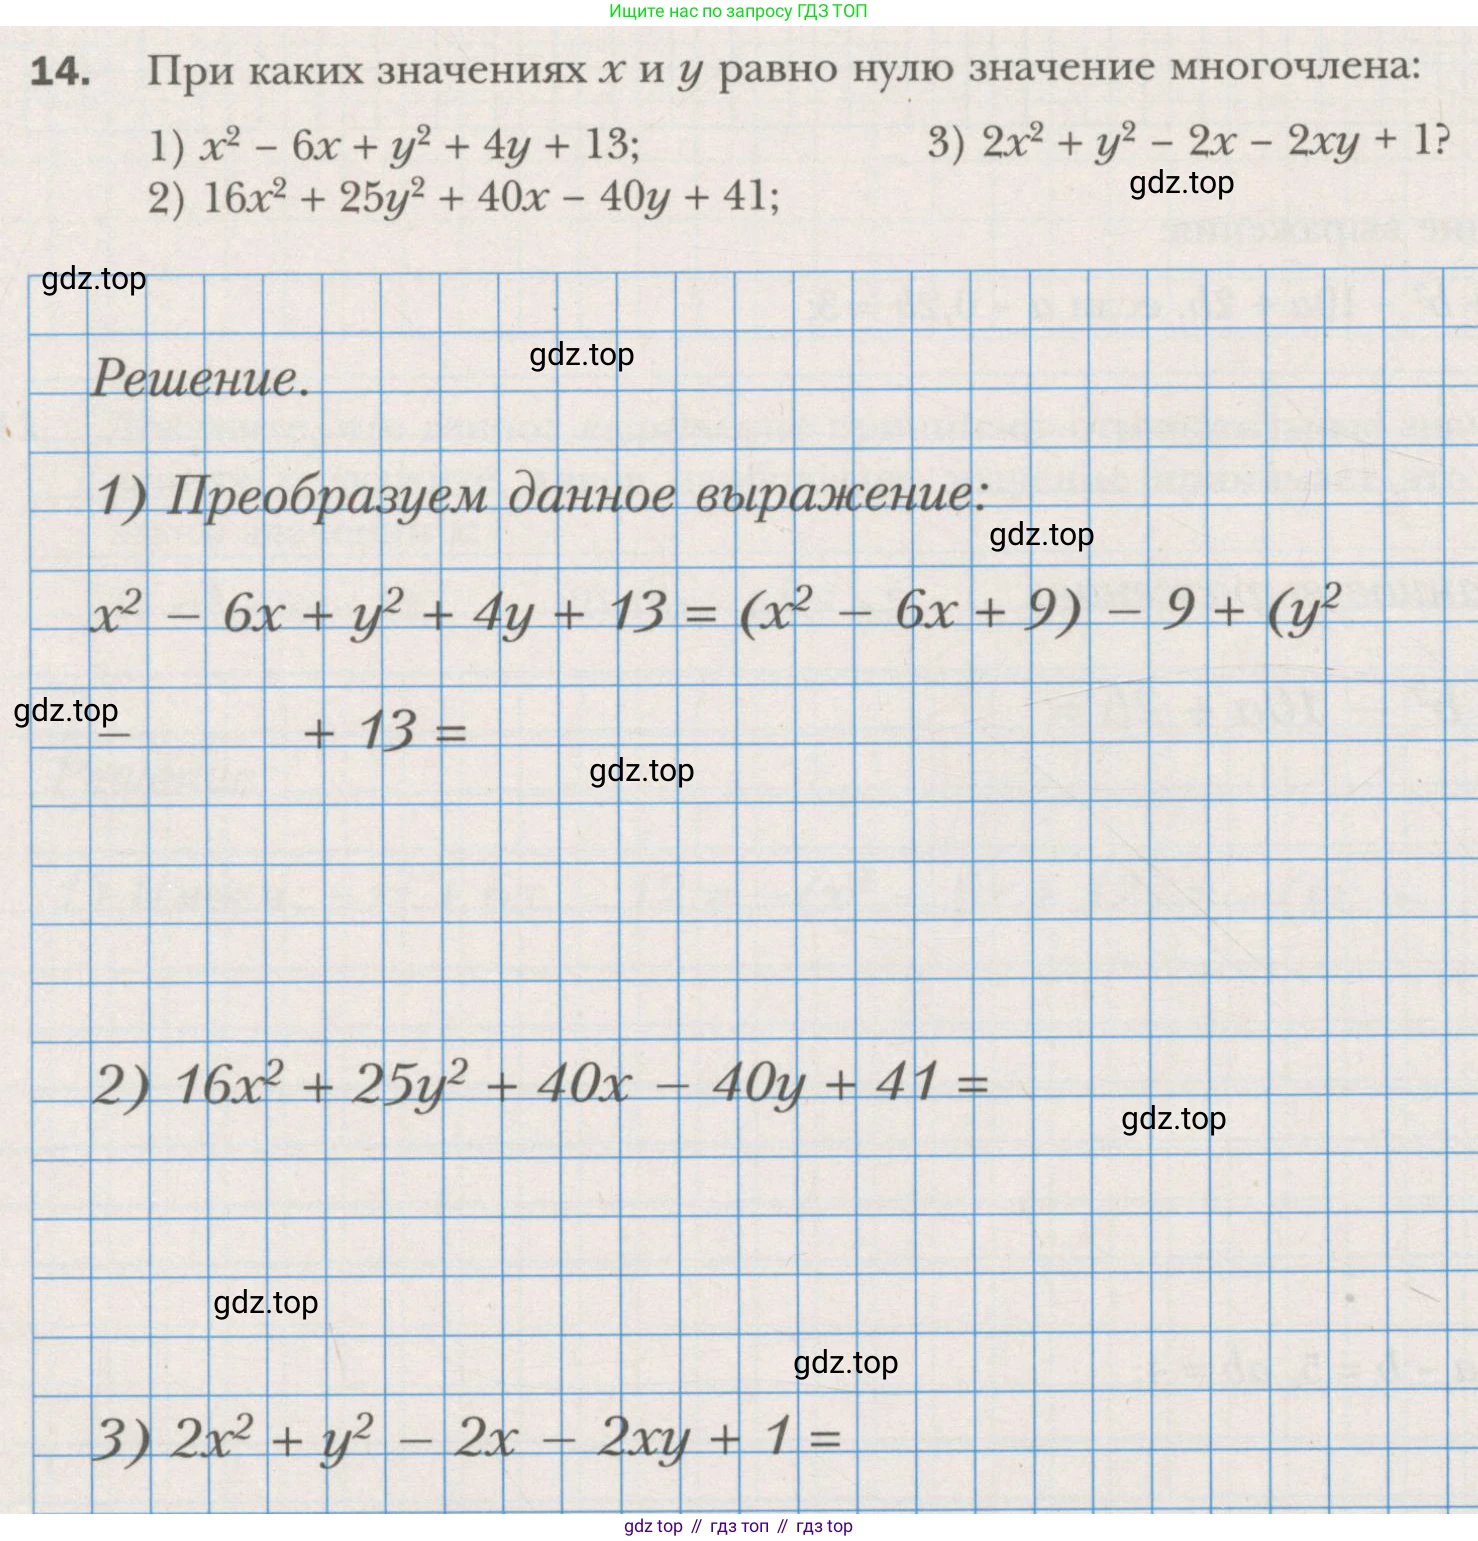 Ищите нас по запросу ГДЗ ТОП
14. При каких значениях x и y равно нулю значение многочлена:
1) x² – 6x + y² + 4y + 13; 3) 2x² + y² – 2x – 2xy + 1?
gdz.top
2) 16x² + 25y² + 40x – 40y + 41;
gdz.top
gdz.top
Решение.
1) Преобразуем данное выражение:
gdz.top
x² – 6x + y² + 4y + 13 = (x² – 6x + 9) – 9 + (y²
gdz.top
– + 13 =
gdz.top
2) 16x² + 25y² + 40x – 40y + 41 =
gdz.top
gdz.top
gdz.top
3) 2x² + y² – 2x – 2xy + 1 =
gdz.top // гдз топ // гдз top